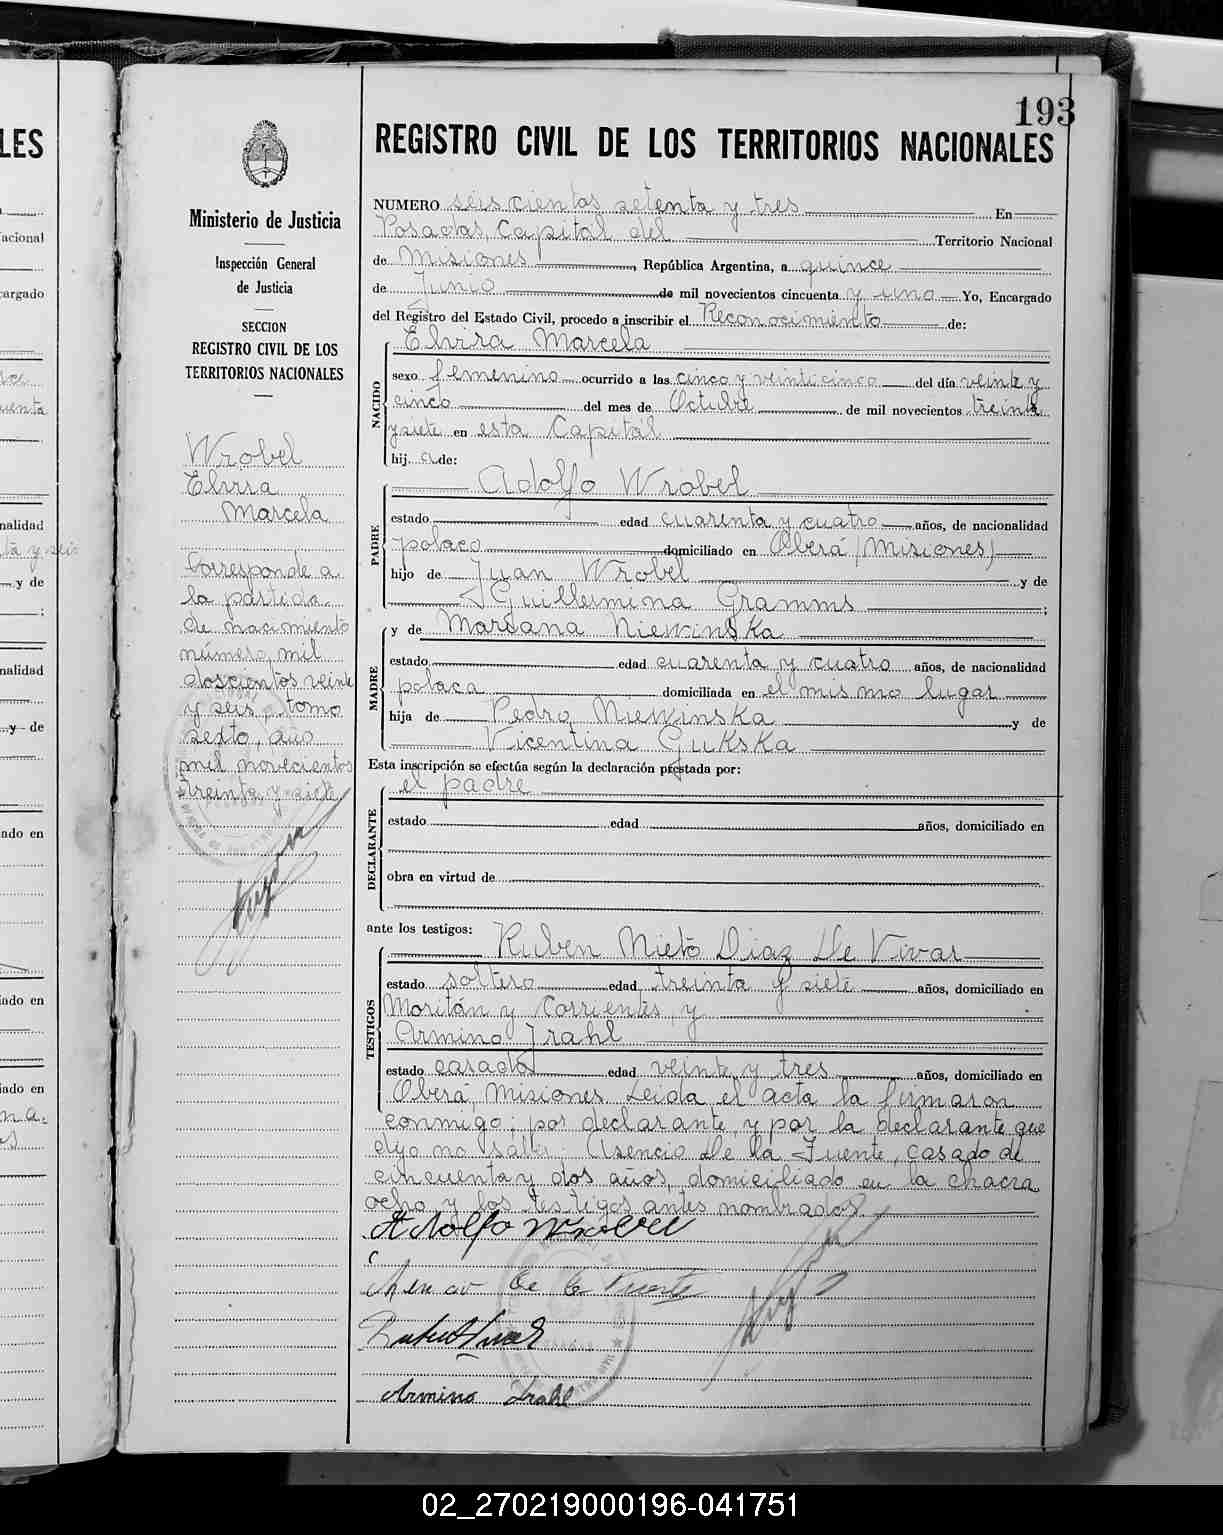 193
REGISTRO CIVIL DE LOS TERRITORIOS NACIONALES
Ministerio de Justicia
Inspección General
de Justicia
SECCION
REGISTRO CIVIL DE LOS
TERRITORIOS NACIONALES
Wrobel
Elvira
Marcela
Corresponde a
la partida
de nacimiento
número mil
doscientos veinte
y seis, tomo
sexto, año
mil novecientos
treinta y siete
NUMERO seiscientos setenta y tres En
Posadas, Capital del Territorio Nacional
de Misiones, República Argentina, a quince
de Junio de mil novecientos cincuenta y uno Yo, Encargado
del Registro del Estado Civil, procedo a inscribir el Reconocimiento de:
Elvira Marcela
NACIDO
sexo femenino ocurrido a las cinco y veinticinco del día veinte y
cinco del mes de Octubre de mil novecientos treinta
y siete en esta Capital
hij a de:
Adolfo Wrobel
PADRE
estado edad cuarenta y cuatro años, de nacionalidad
polaco domiciliado en Oberá (Misiones)
hijo de Juan Wrobel y de
Guillermina Gramms;
y de Mareana Niewinska
MADRE
estado edad cuarenta y cuatro años, de nacionalidad
polaca domiciliada en el mismo lugar
hija de Pedro Niewinska y de
Vicentina Gukska
Esta inscripción se efectúa según la declaración prestada por:
el padre
DECLARANTE
estado edad años, domiciliado en
obra en virtud de
ante los testigos:
Ruben Nieto Diaz De Vivar
TESTIGOS
estado soltero edad treinta y siete años, domiciliado en
Moritán y Corrientes, y
Armino Irahl
estado casado edad veinte y tres años, domiciliado en
Oberá, Misiones Leida el acta la firmaron
conmigo; por declarante, y por la declarante que
dijo no saber: Asencio De la Fuente, casado de
cincuenta y dos años, domiciliado en la chacra
ocho y los testigos antes nombrados.
Adolfo Wrobel
Asencio De la Fuente
Armino Irahl
02_270219000196-041751